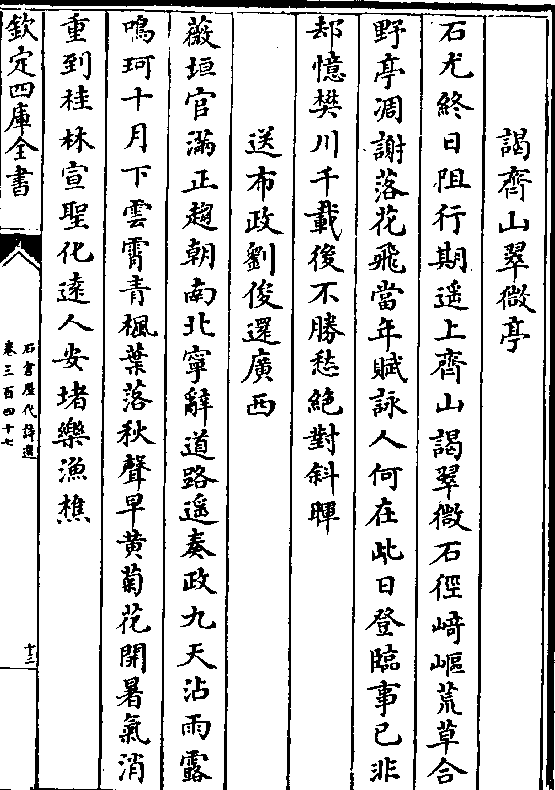 謁齊山翠微亭
石尤終日阻行期遥上齊山謁翠微石徑﨑嶇荒草合
野亭凋謝落花飛當年賦詠人何在此日登臨事已非
却憶樊川千載後不勝愁絶對斜暉
送布政劉俊還廣西
薇垣官滿正趨朝南北寧辭道路遥奏政九天沾雨露
鳴珂十月下雲霄青楓葉落秋聲早黄菊花開暑氣消
重到桂林宣聖化逺人安堵樂漁樵
欽定四庫全書
石倉歷代詩選
卷三百四十七
十三